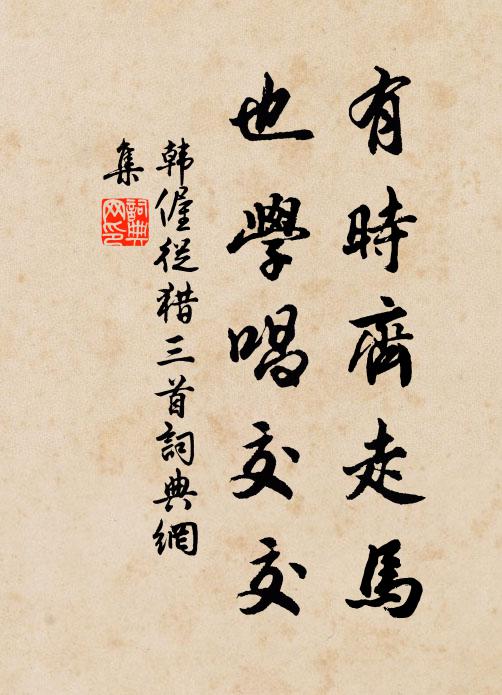 有時齊走馬
也學唱交交
韩偓從猎三首詞典網
集
詞典网印